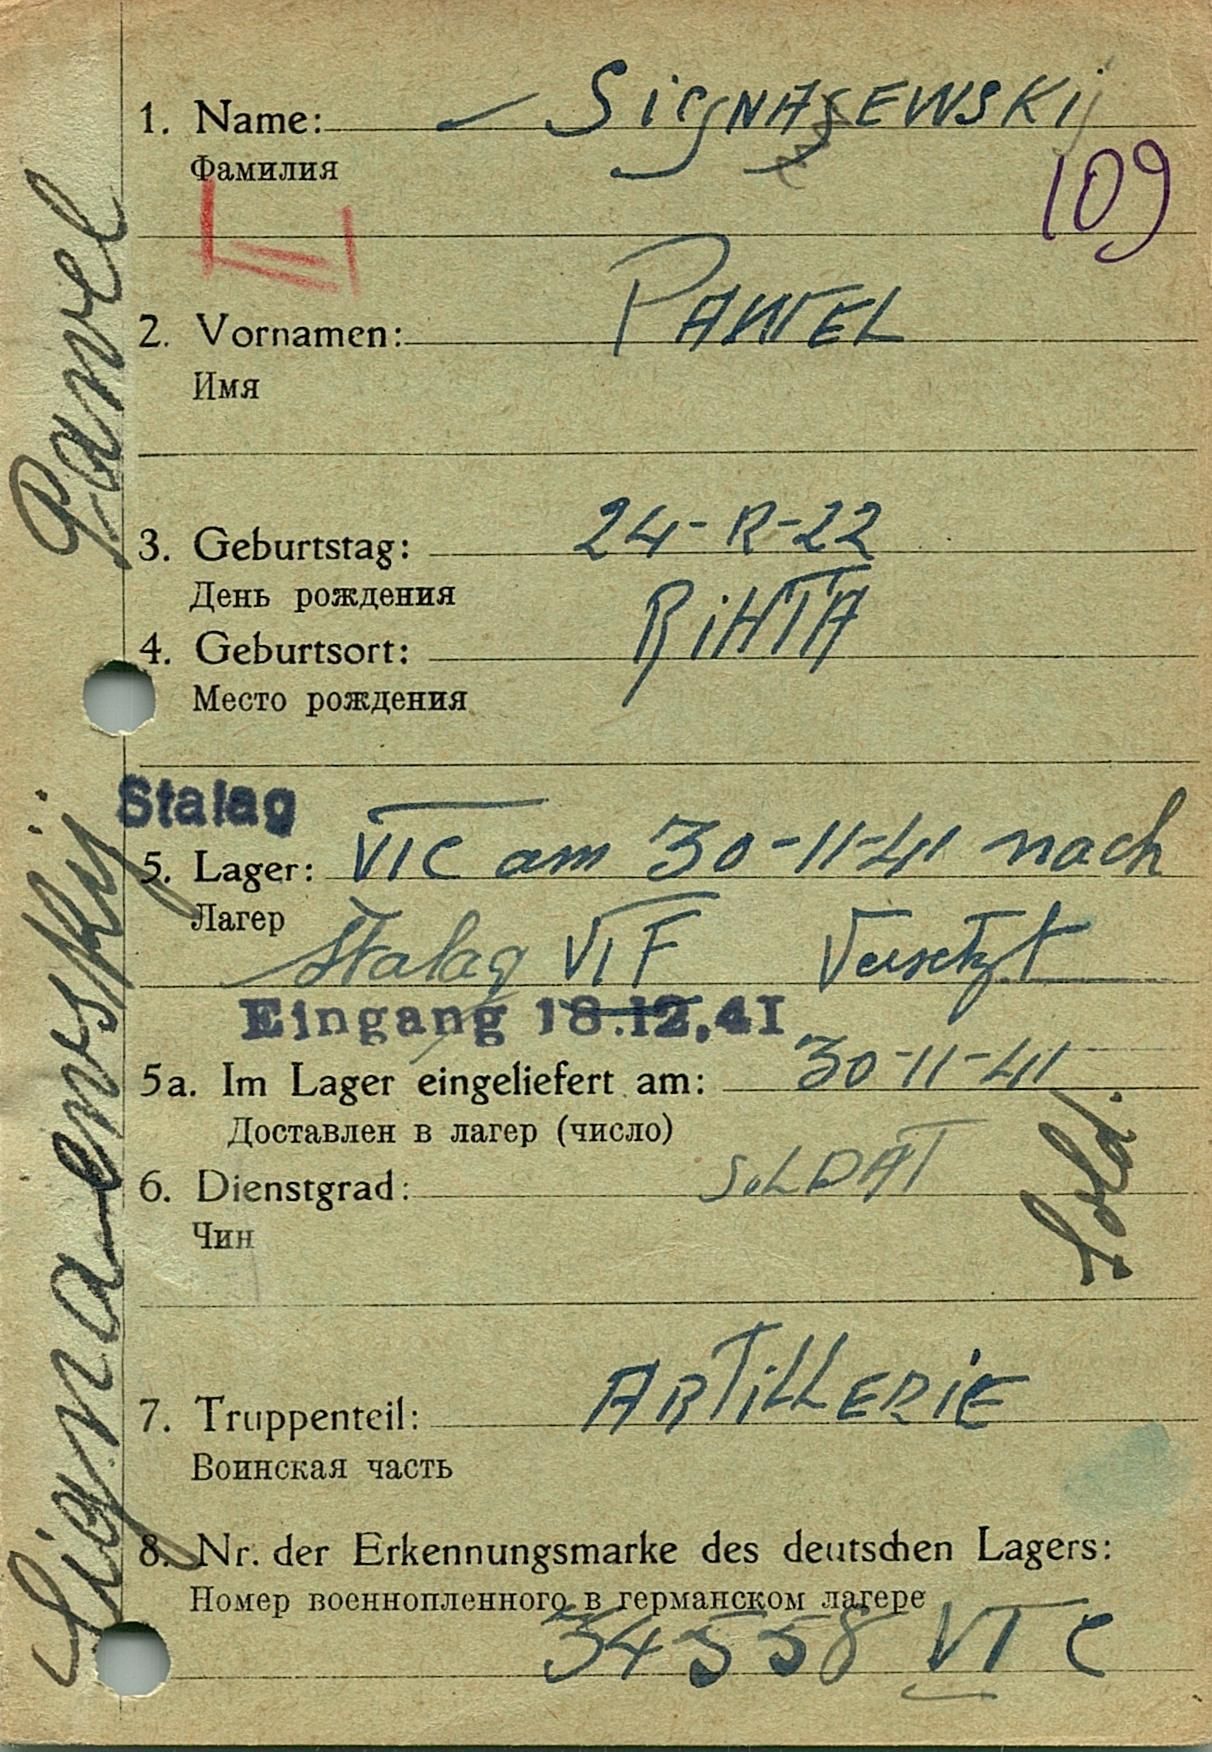 1. Name: Signajewskij
Фамилия
109
2. Vornamen: PAWEL
Имя
3. Geburtstag: 24-R-22
День рождения
4. Geburtsort: RiHTA
Место рождения
Stalag
5. Lager: VIC am 30-11-41 nach
Лагер
Stalag VIF Versetzt
Eingang 18.12.41
5a. Im Lager eingeliefert am: 30-11-41
Доставлен в лагер (число)
6. Dienstgrad: SoLDAT
Чин
7. Truppenteil: ARTiLLERiE
Воинская часть
8. Nr. der Erkennungsmarke des deutschen Lagers:
Номер военнопленного в германском лагере
34558 VI C
Signaewskij Pawel